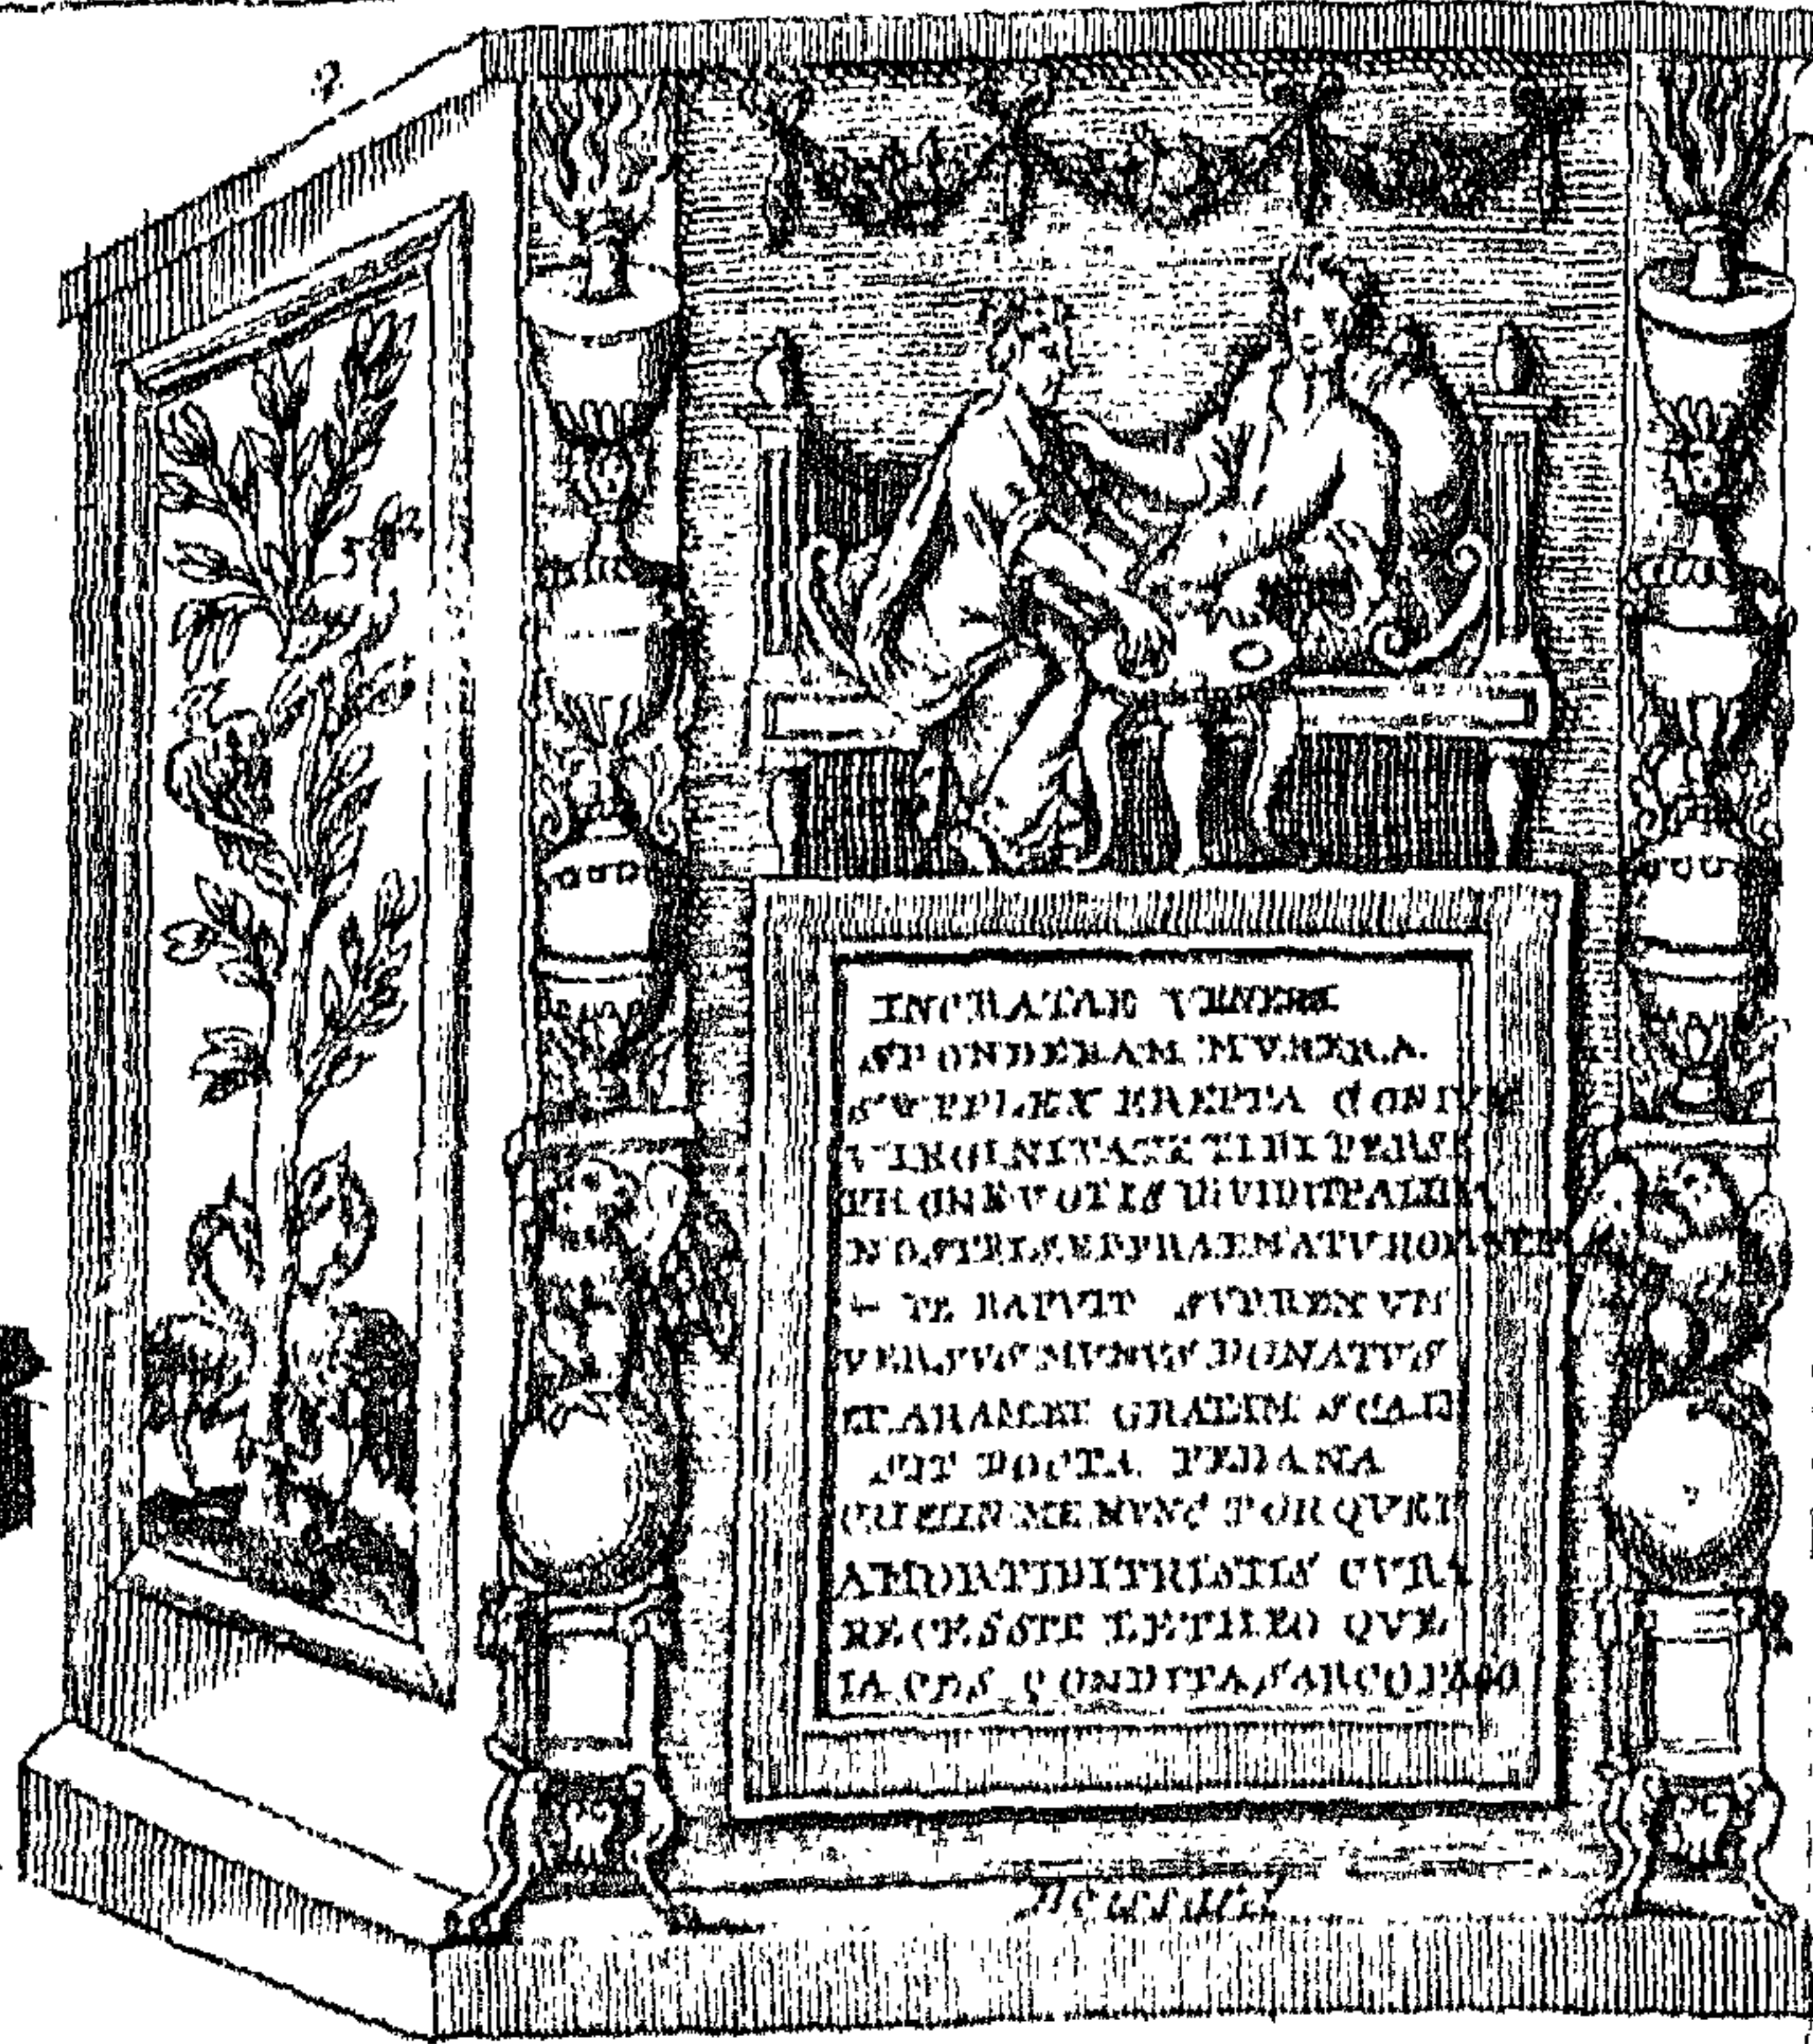 INGRATAE VENERI
SPONDEBAM MVNERA
SVPPLEX EREPTA CONIVX
VIRGINITATE TIBI PERSE
PHONE VOTIS DIVIDIT PALLIDA
NOSTRIS ET PRAEMATVRO
TE RAPVIT SVPREMVM
VERSVS MVNVS DONATVS
ET ARAM ET GRATIM SCALP
SIT DOCTA PEDANA
ME NVNC TORQVET
AMOR TIBI TRISTIS CVRA
RECESSIT LETHEO QVE
IACES CONDITA SARCOPAGO